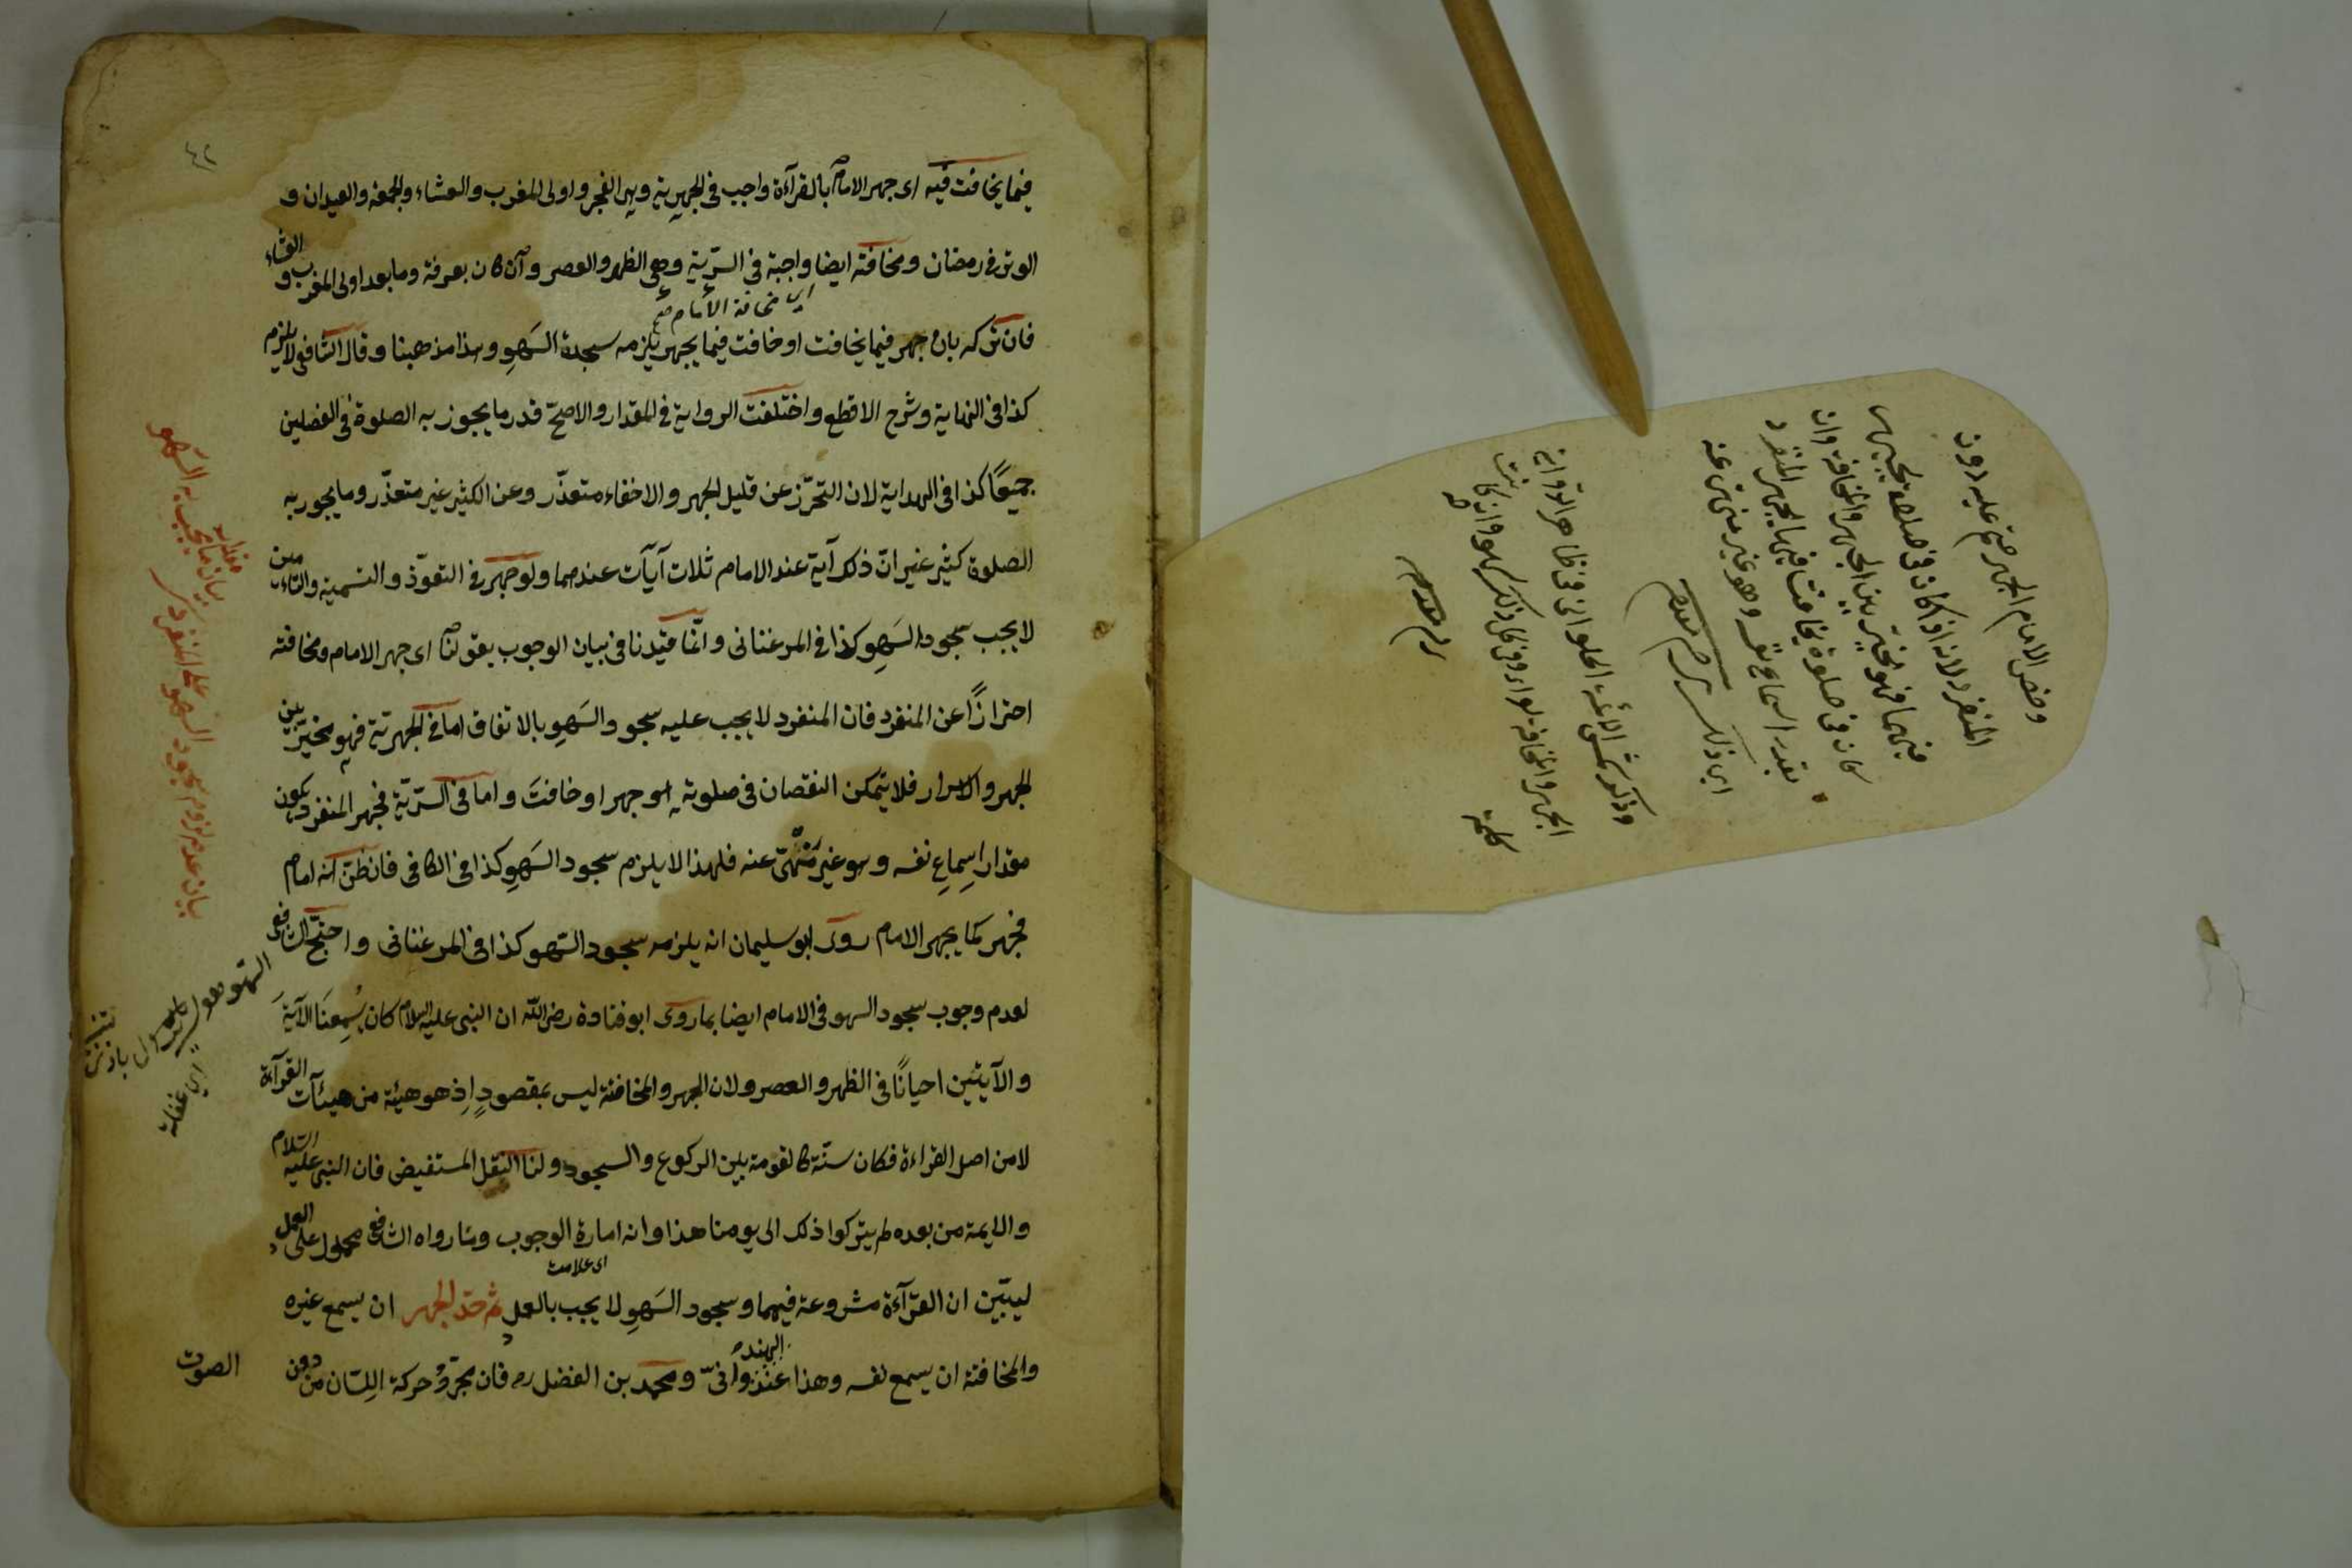 ٤٢
فيما يخافت فيه اى جهر الامام بالقرآءة واجب فى الجهرية وهى الفجر واولى المغرب والعشاء والجمعة والعيدان و
الوتر فى رمضان ومخافته ايضا واجبة فى السرّية وهى الظهر والعصر وان كان بعرفة وما بعد اولى المغرب والعشاء
اى مخافة الامام
فان تركه بان جهر فيما يخافت او خافت فيما يجهر يلزمه سجدة السَهوِ وهذا مذهبنا وقال الشافعى لا يلزم
كذا فى النهاية وشرح الاقطع واختلفت الرواية فى المقدار والاصحّ قدر ما يجوز به الصلوة فى الفصلين
جميعًا كذا فى الهداية لان التحرّز عن قليل الجهر والاخفاء متعذّر وعن الكثير غير متعذّر وما يجوز به
الصلوة كثير غير انّ ذلك آية عند الامام ثلاث آيات عندهما ولو جهر فى التعوّذ والتسمية والتامين
لا يجب سجود السَهوِ كذا فى المرغنانى وانّما قيّدنا فى بيان الوجوب بقولنا اى جهر الامام ومخافته
احترازًا عن المنفرد فان المنفرد لا يجب عليه سجود السَهوِ بالاتفاق اما فى الجهرية فهو مخيّر بين
الجهر والاسرار فلا يتمكن النقصان فى صلوته لو جهر او خافتَ واما فى السرّية فجهر المنفرد يكون
مقدار اسِماعِ نفسه وهو غير مَنْهىّ عنه فلهذا لا يلزم سجود السَهوِ كذا فى الكافى فان ظنّ انه امام
فجهر كما يجهر الامام روى ابو سليمان انه يلزمه سجود السَهو كذا فى المرغنانى واحتجّ الشافعى
لعدم وجوب سجود السهو فى الامام ايضا بما روى ابو قتادة رضى اللّٰه ان النبى عليه السلام كان يُسمِعنَا الآيةَ
والآيتين احيانًا فى الظهر والعصر ولان الجهر والمخافتة ليس بمقصودٍ اِذ هو هيئة من هيئآت القرآءة
لا من اصل القراءة فكان سنّة كالقومة بين الركوع والسجود ولنا النقل المستفيض فان النبى عليه السّلام
والايمة من بعده لم يتركوا ذلك الى يومنا هذا وانه امارة الوجوب وما رواه الشافعى محمول على العمل
اى علامت
ليبيّن ان القرآءة مشروعة فيهما وسجود السَهوِ لا يجب بالعمل ثم حدّ الجهر ان يسمع غيره
والمخافتة ان يسمع نفسه وهذا عند الهندوانىّ ومحمد بن الفضل ره فان مجرّد حركة اللِسّان من دون
الصوت
بيان ما يجب به السهو
بيان عدم لزوم سجود السهو على المنفرد
السهو هو
اى غفلة
وخص الامام الجهر عليه دون
المنفرد لانه اذا كان فى صلوة يجهر
فيهما فهو مخيّر بين الجهر والمخافة وان
كان فى صلوة يخافت فيها يجهر المنفرد
بقدر اسماع نفسه وهو غير منهى عنه
وذكر شمس الائمة الحلوانى فى ظاهر الرواية
الجهر والمخافة سواء وفى كل ذلك سهو وان كانت
كلمة